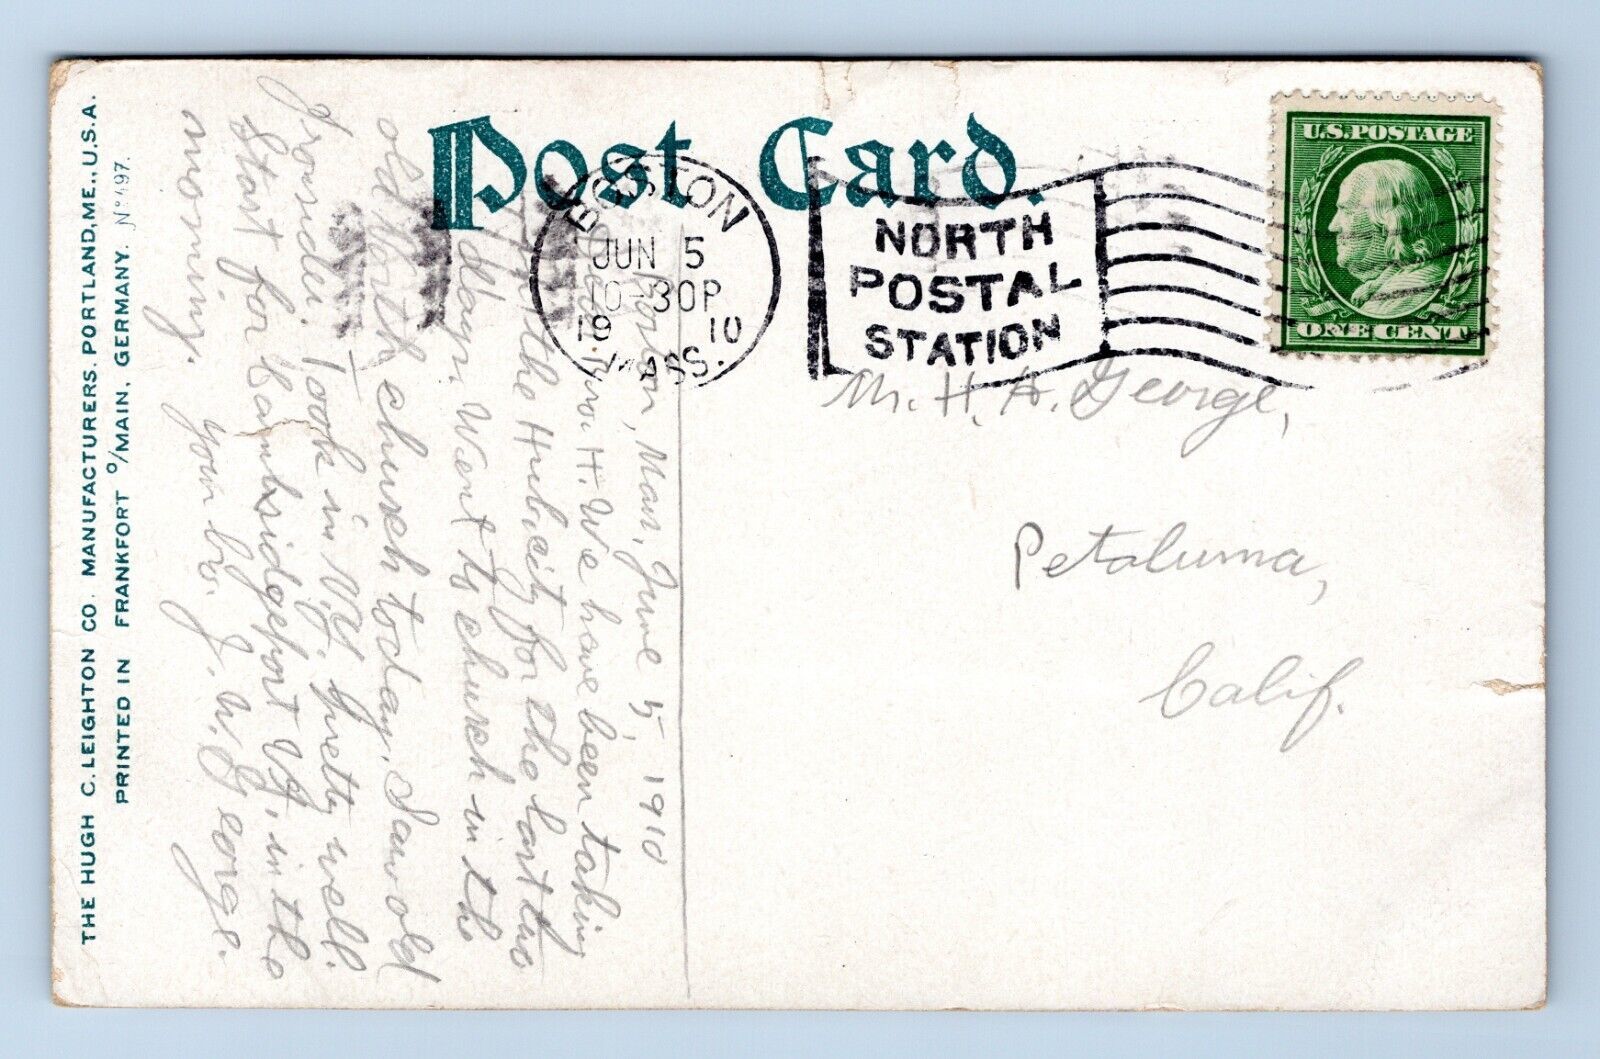 Post Card.
BOSTON
JUN 5
10-30P
19 10
MASS.
NORTH
POSTAL
STATION
U.S. POSTAGE
ONE CENT
Mr. H. A. George,
Petaluma,
Calif.
Boston, Mass, June 5, 1910
Dear Bro. H. We have been taking
in the Hub city for the last two
days. Went to church in the
old North church today. Saw old
Ironsides. Took in N.Y. pretty well.
Start for Cambridgeport Vt, in the
morning.
Your bro. J. W. George.
THE HUGH C. LEIGHTON CO. MANUFACTURERS, PORTLAND, ME., U.S.A.
PRINTED IN FRANKFORT O/MAIN, GERMANY.